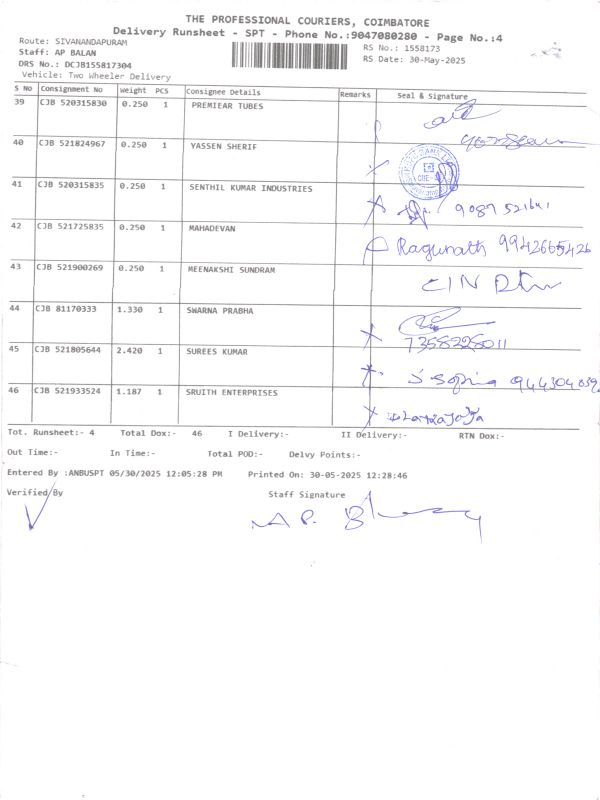 THE PROFESSIONAL COURIERS, COIMBATORE
Delivery Runsheet - SPT - Phone No.:9047080280 - Page No.:4
Route: SIVANANDAPURAM
RS No.: 1558173
Staff: AP BALAN
RS Date: 30-May-2025
DRS No.: DCJB155817304
Vehicle: Two Wheeler Delivery
S No Consignment No Weight PCS Consignee Details Remarks Seal & Signature
39 CJB 520315830 0.250 1 PREMIEAR TUBES
40 CJB 521824967 0.250 1 YASSEN SHERIF
41 CJB 520315835 0.250 1 SENTHIL KUMAR INDUSTRIES
42 CJB 521725835 0.250 1 MAHADEVAN Ragunath 9942665426
43 CJB 521900269 0.250 1 MEENAKSHI SUNDRAM
44 CJB 81170333 1.330 1 SWARNA PRABHA 7358228011
45 CJB 521805644 2.420 1 SUREES KUMAR S Sophia
46 CJB 521933524 1.187 1 SRUITH ENTERPRISES
Tot. Runsheet:- 4 Total Dox:- 46 I Delivery:- II Delivery:- RTN Dox:-
Out Time:- In Time:- Total POD:- Delvy Points:-
Entered By :ANBUSPT 05/30/2025 12:05:28 PM Printed On: 30-05-2025 12:28:46
Verified By Staff Signature
A P. B